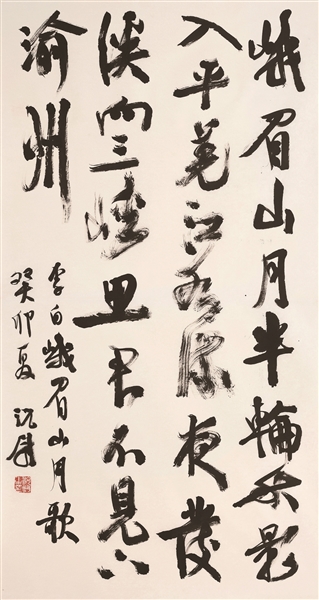 峨眉山月半輪秋影
入平羌江水流夜發
溪向三峽思君不見下
渝州
李白峨眉山月歌
癸卯夏